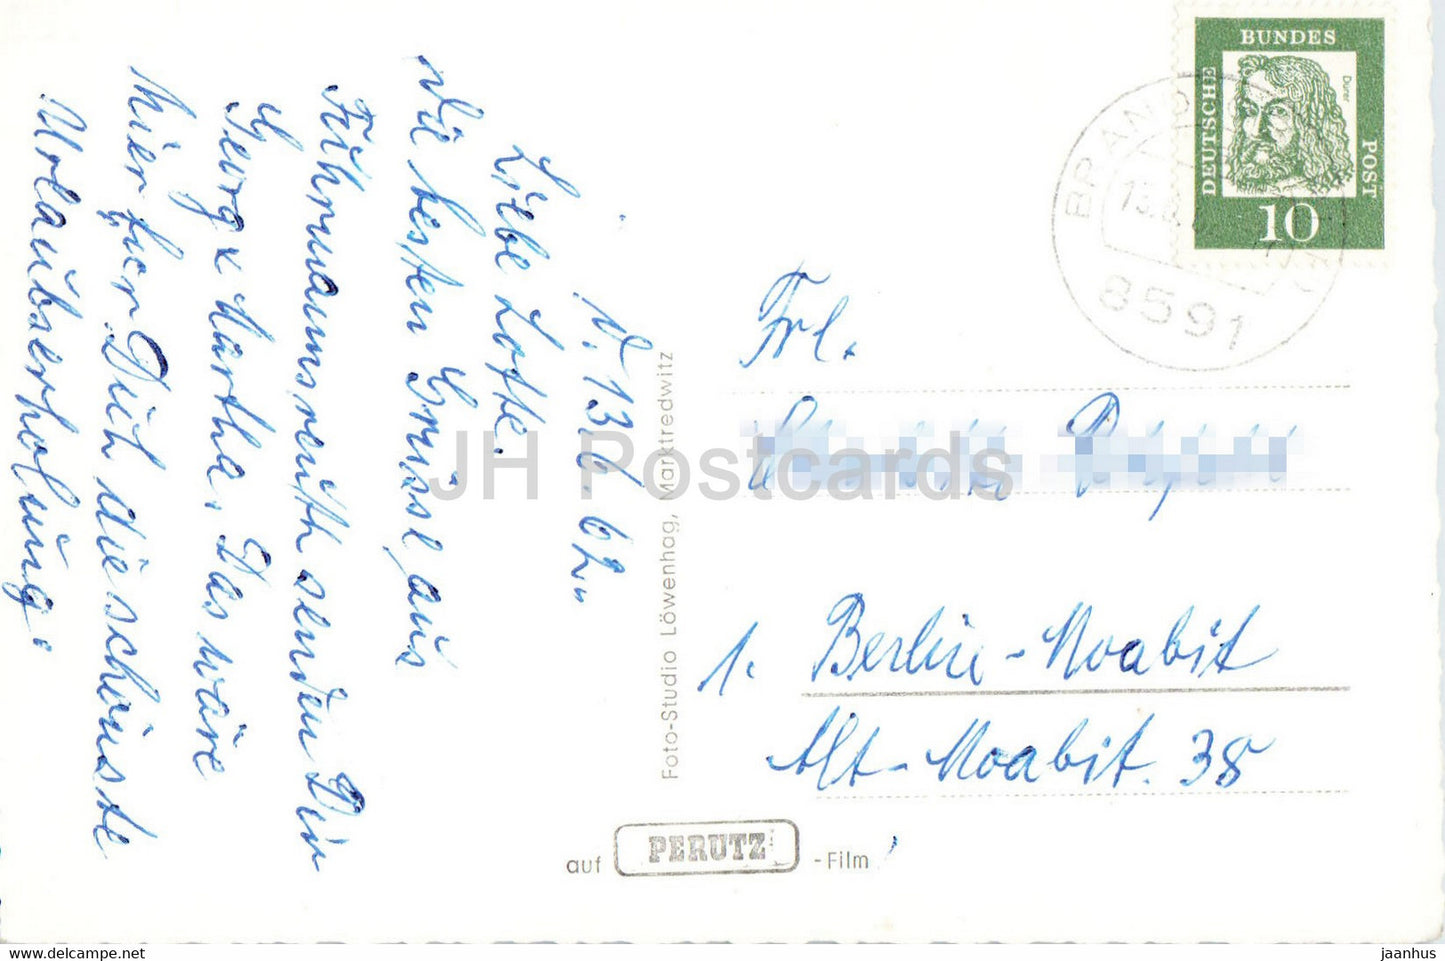 D. 13.6.62.
Liebe Lotte.
Die besten Grüssl, aus
Fuhrmannsreuth senden Dir
Georg u Martha. Das wäre
hier für Dich die schönste
Urlaubserholung.
Foto-Studio Löwenhag, Marktredwitz
auf PERUTZ -Film
DEUTSCHE BUNDES POST
Dürer
10
BRAND
13.6
8591
Frl.
1. Berlin-Moabit
Alt-Moabit. 38
JH Postcards
www.delcampe.net
jaanhus